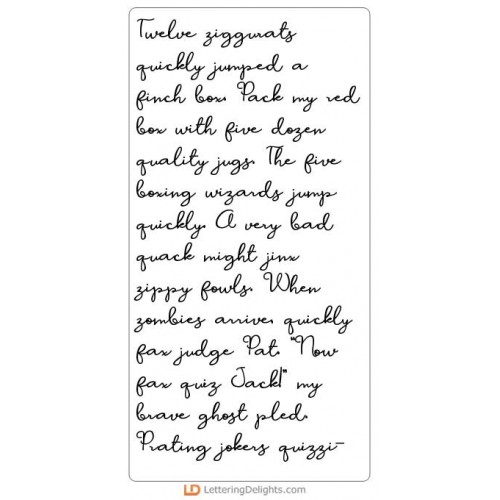 Twelve ziggurats
quickly jumped a
finch box. Pack my red
box with five dozen
quality jugs. The five
boxing wizards jump
quickly. A very bad
quack might jinx
zippy fowls. When
zombies arrive, quickly
fax judge Pat. "Now
fax quiz Jack!" my
brave ghost pled.
Prating jokers quizzi-
LD LetteringDelights.com